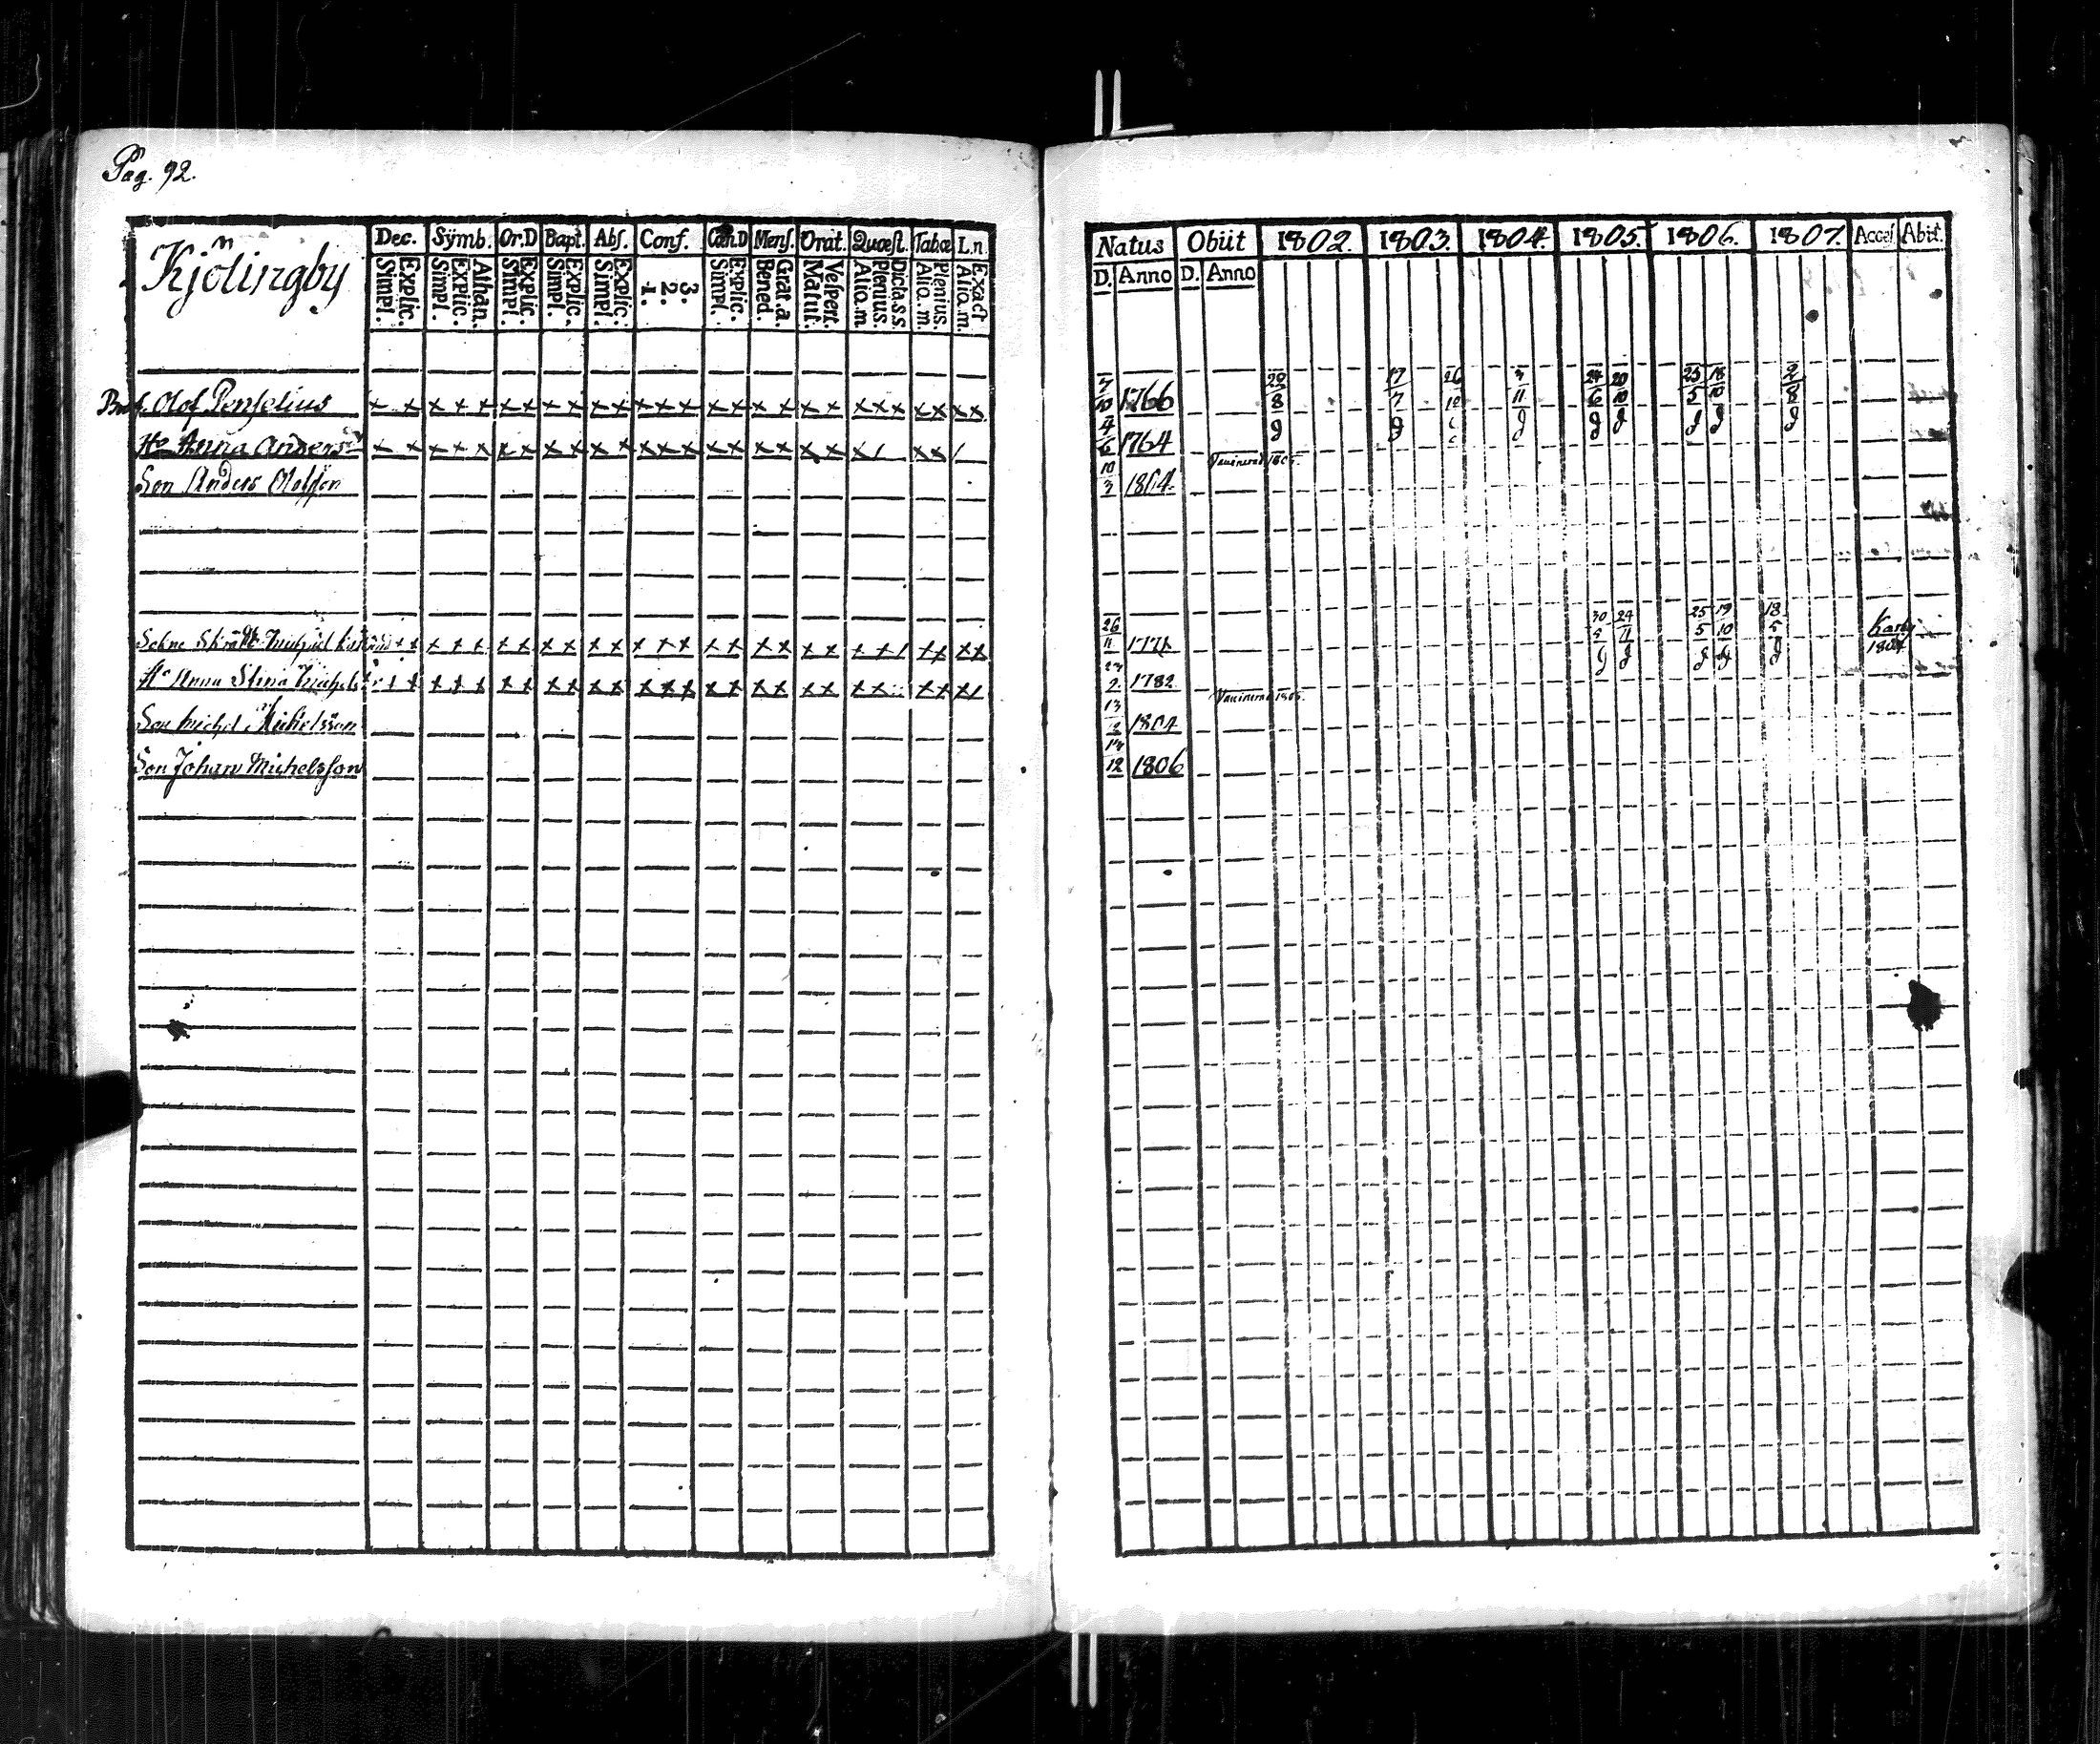 Pag. 92.
Kjölingby
Dec. Sÿmb. Or.D Bapt. Abs. Conf. Cœn.D Mens. Orat. Quæst. Tabæ I.n
Simpl. Explic. Simpl. Explic. Athan. Simpl. Explic. Simpl. Explic. Simpl. Explic. 1. 2. 3. Simpl. Explic. Bened. Grat.a. Matut. Vespert. Alio.m Plenius. Dicta.s.s. Alio.m Plenius. Alio.m. Exact
Olof Penselius
Hu Anna Anders
Son Anders Olofson
Hu Anna Stina Michels
Son Michel Michelsson
Son Johan Michelsson
Natus Obiit 1802. 1803. 1804. 1805. 1806. 1807. Acces. Abit.
D. Anno D. Anno
7/10 1766 29/8 17/7 26/12 3/11 24/6 20/10 25/5 18/10 2/8
4/6 1764
Vaccinerad 1805.
10/3 1804.
26/11 1771 30/5 24/11 25/5 19/10 18/5 Karby 1804
23/2 1782
Vaccinerad 1805.
13/12 1804
14/12 1806